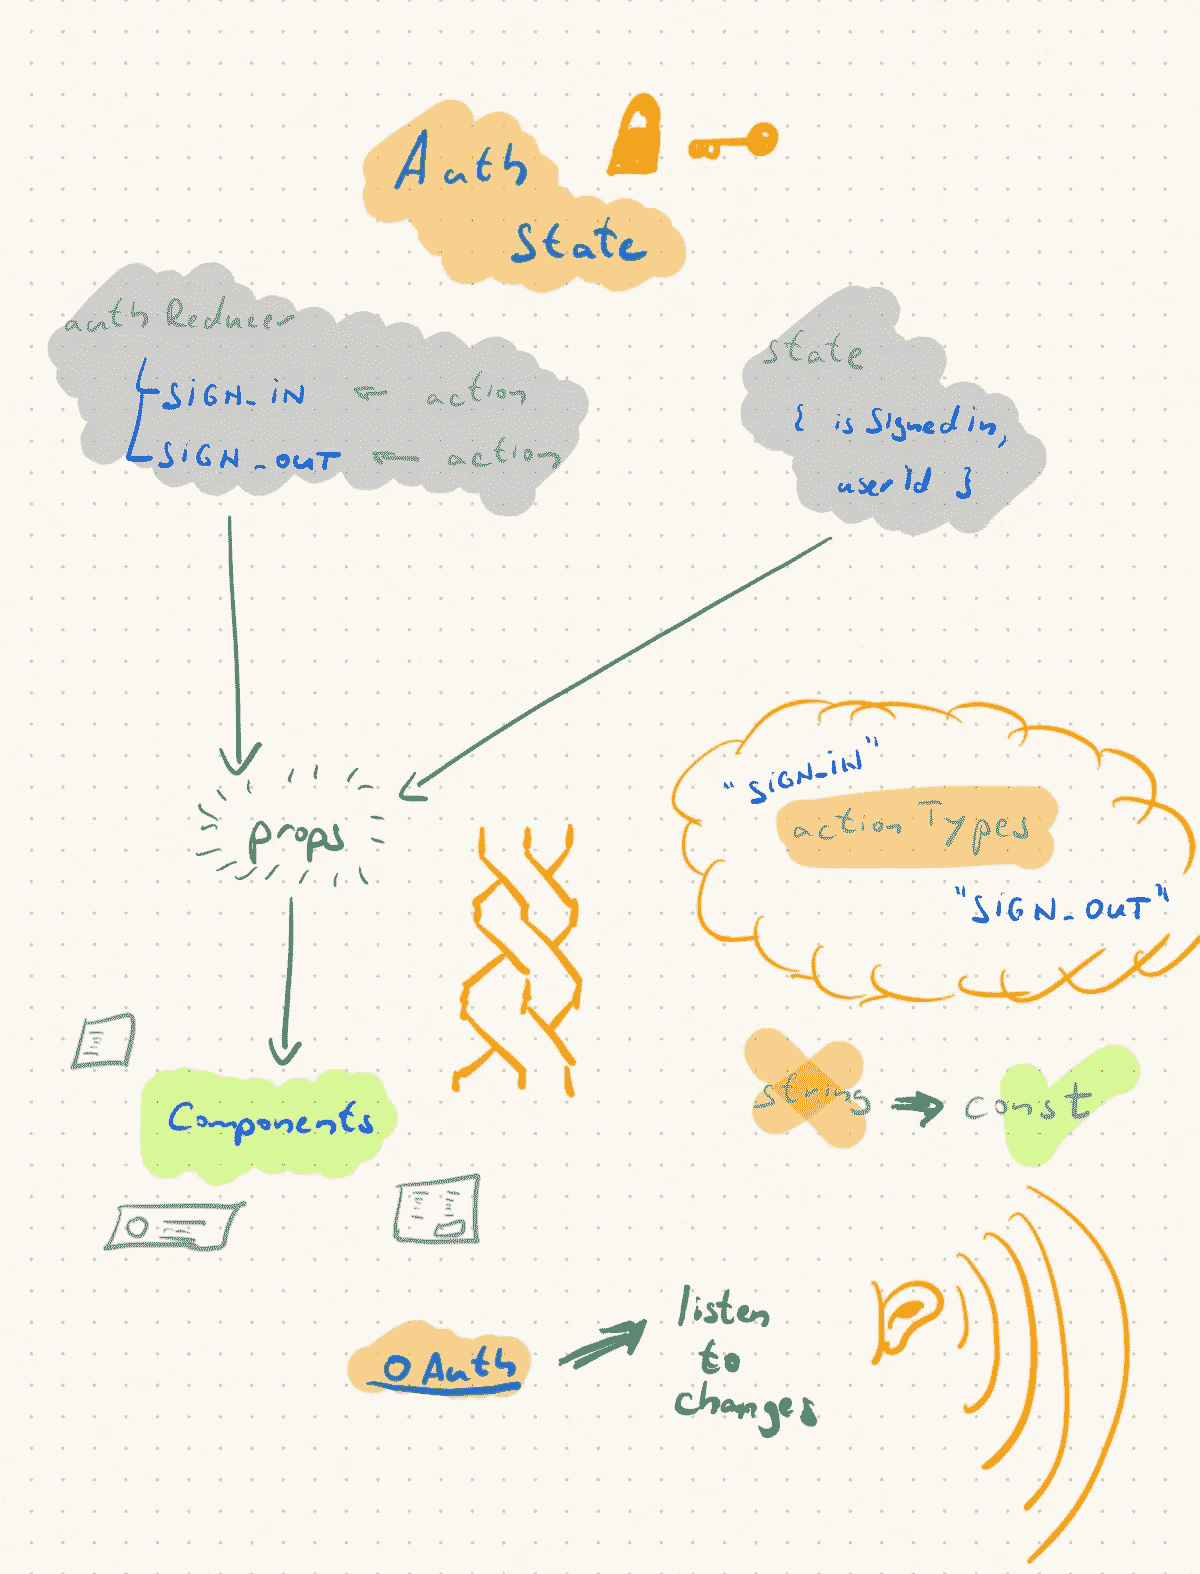 Auth
State
authReducer
SIGN_IN ← action
SIGN_OUT ← action
state
{ isSignedin,
userId }
props
"SIGN_IN"
actionTypes
"SIGN_OUT"
Components
string → const
OAuth → listen
to
changes